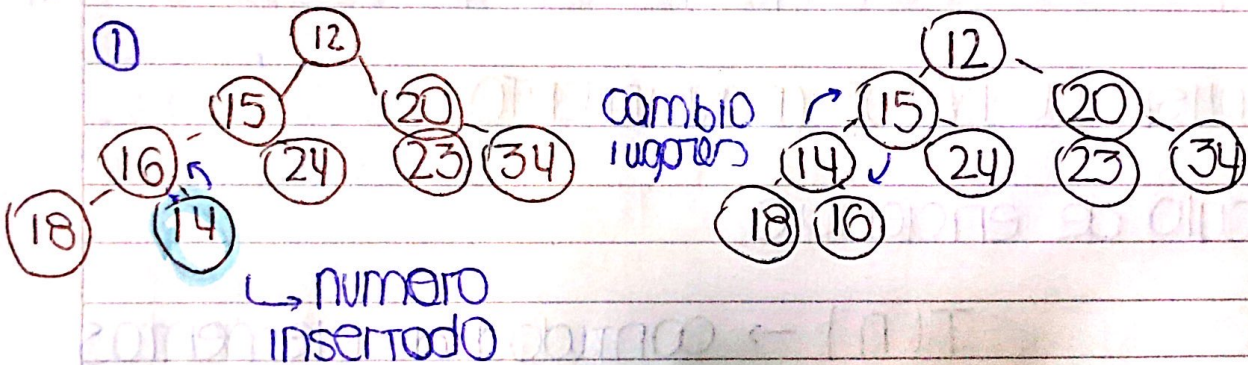 ①
12
15 20
16 24 23 34
18 14
↳ numero
insertado
cambio
lugares
12
15 20
14 24 23 34
18 16